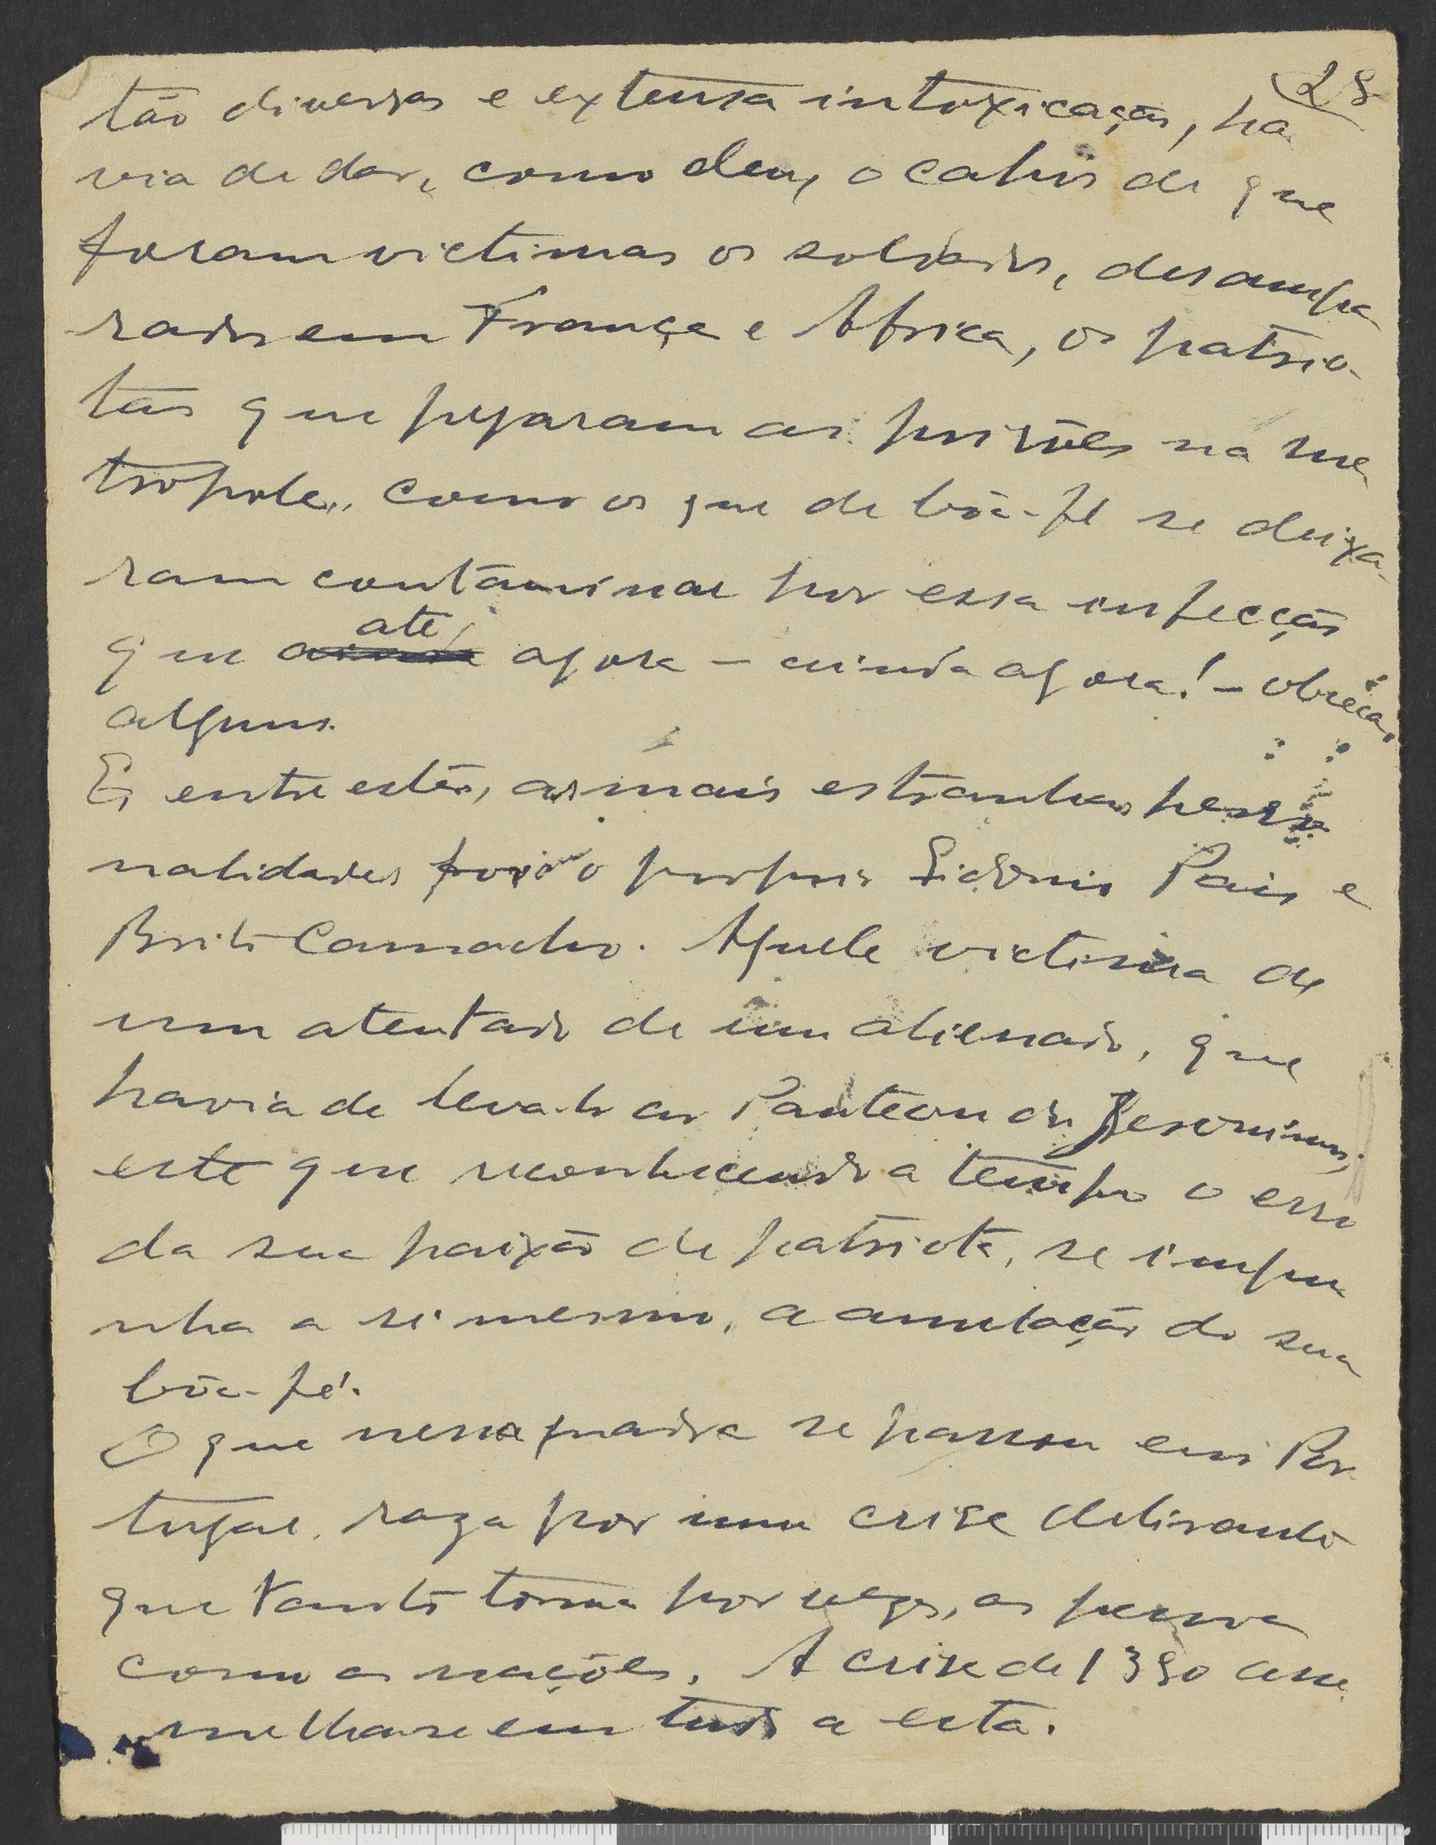 28
tão diversas e extensa intoxicação, ha
via de dar, como deu, o cabos de que
foram victimas os soldados, desampa
rados em França e Africa, os patrio-
tas que pejaram as prisões na me
tropole, como os que de bôa-fé se deixa-
ram contaminar por essa infecção
até
que ainda agora – ainda agora! – obceca,
alguns.
E, entre estes, as mais estranhas perso
nalidades o proprio Sidonio Pais e
Brito Camacho. Aquele victima de
um atentado de um alienado, que
havia de leval-o ao Panteon dos Jeronimos,
este que reconhecendo a tempo o erro
da sua paixão de patriota, se impu
nha a si mesmo, a anulação da sua
bôa-fé.
O que nessa quadra se passou em Por
tugal, raza por uma crise delirante
que tanto toma por vezes, as pessoas
como as nações. A crise de 1390 asse
melha-se em tudo a esta.